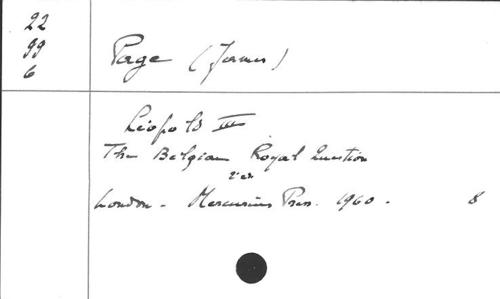 22
99
6
Page (James)
Léopold III
The Belgian Royal Question
2 ex
London - Mercurius Press. 1960. 8